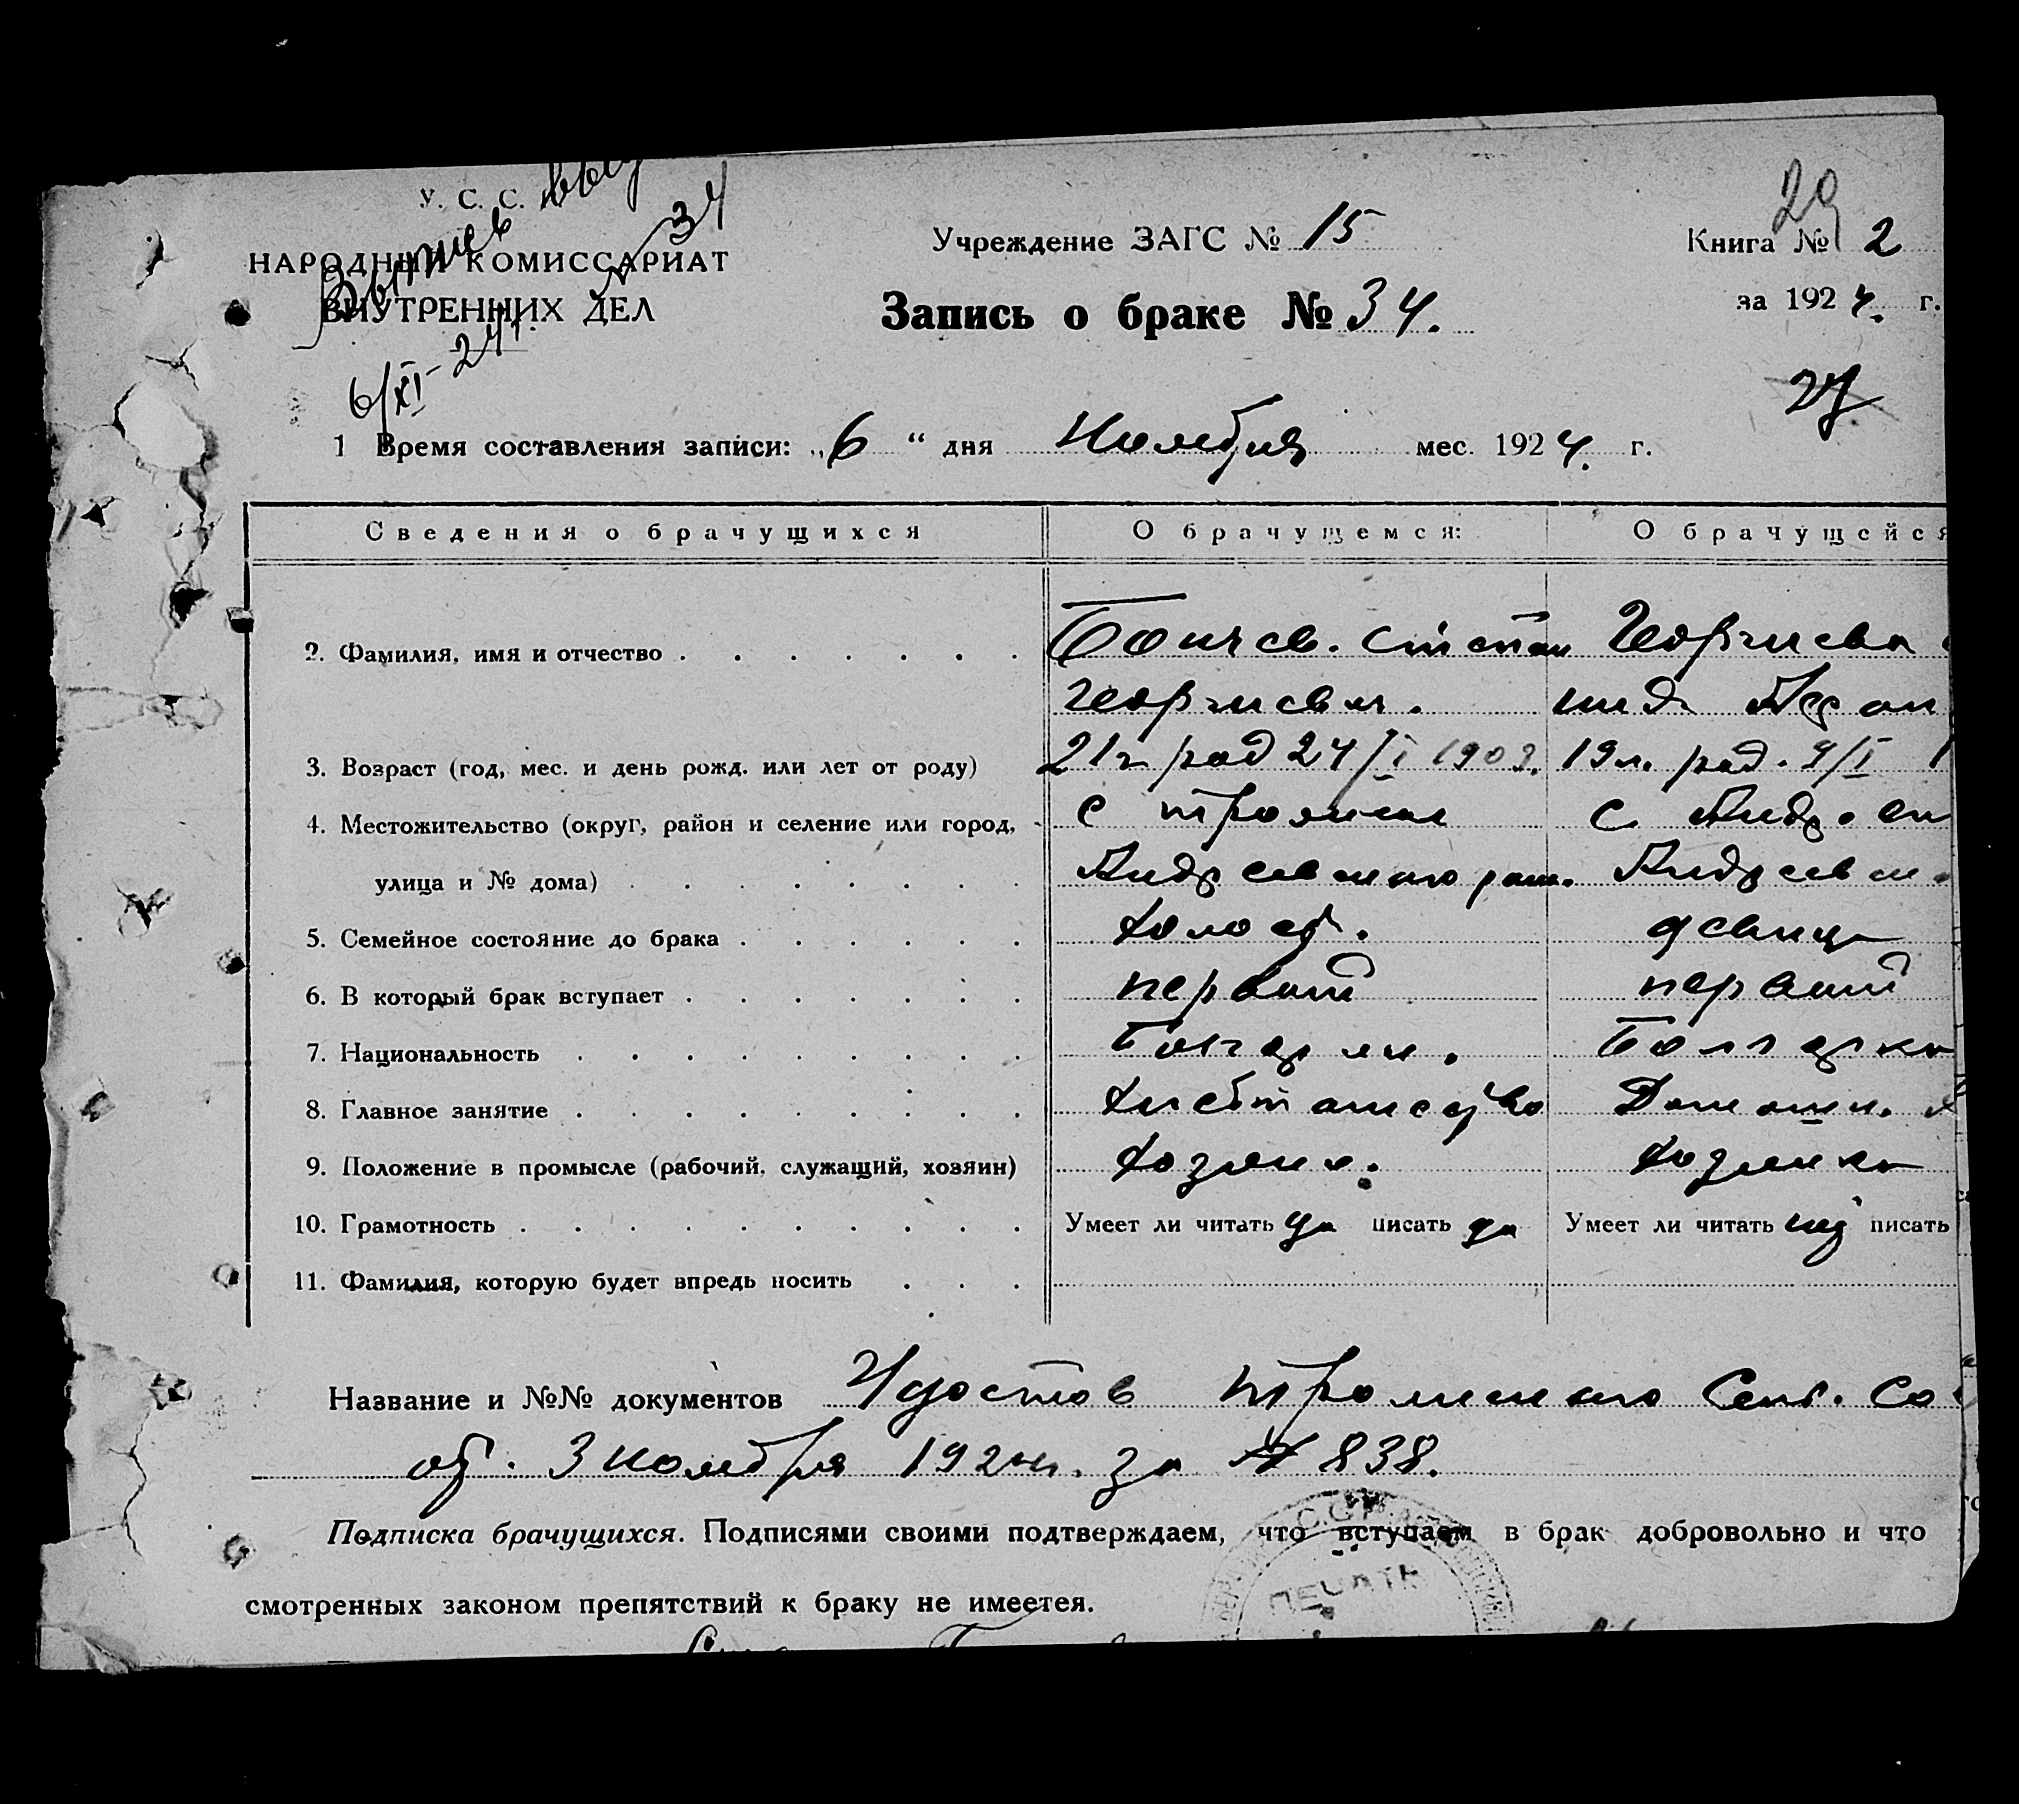 У. С. С.
Выпись выд
№ 34
6/XI-24 г.
НАРОДНЫЙ КОМИССАРИАТ
ВНУТРЕННИХ ДЕЛ
Учреждение ЗАГС № 15
Книга № 2
29
Запись о браке № 34.
за 1924. г.
1 Время составления записи: „6“ дня Ноября мес. 1924. г.
Сведения о брачущихся О брачущемся: О брачущейся
2. Фамилия, имя и отчество Бончев. Степан Георгиева
Георгиевич.
3. Возраст (год, мес. и день рожд. или лет от роду) 21 г. род 24/I 1903. 19 л. род. 9/I 1
4. Местожительство (округ, район и селение или город, с Трояны с Андр.
улица и № дома) Андреевского рай. Андреевск.
5. Семейное состояние до брака холост. девица
6. В который брак вступает первый первый
7. Национальность Болгарин. Болгарка
8. Главное занятие хлебопашество Домашн.
9. Положение в промысле (рабочий, служащий, хозяин) хозяин. хозяйка
10. Грамотность Умеет ли читать да писать да Умеет ли читать нет писать
11. Фамилия, которую будет впредь носить
Название и №№ документов Удостов Троянского Сель. Со
от. 3 ноября 1924 г. за № 838.
Подписка брачущихся. Подписями своими подтверждаем, что вступаем в брак добровольно и что
смотренных законом препятствий к браку не имеется.
ПЕЧАТЬ